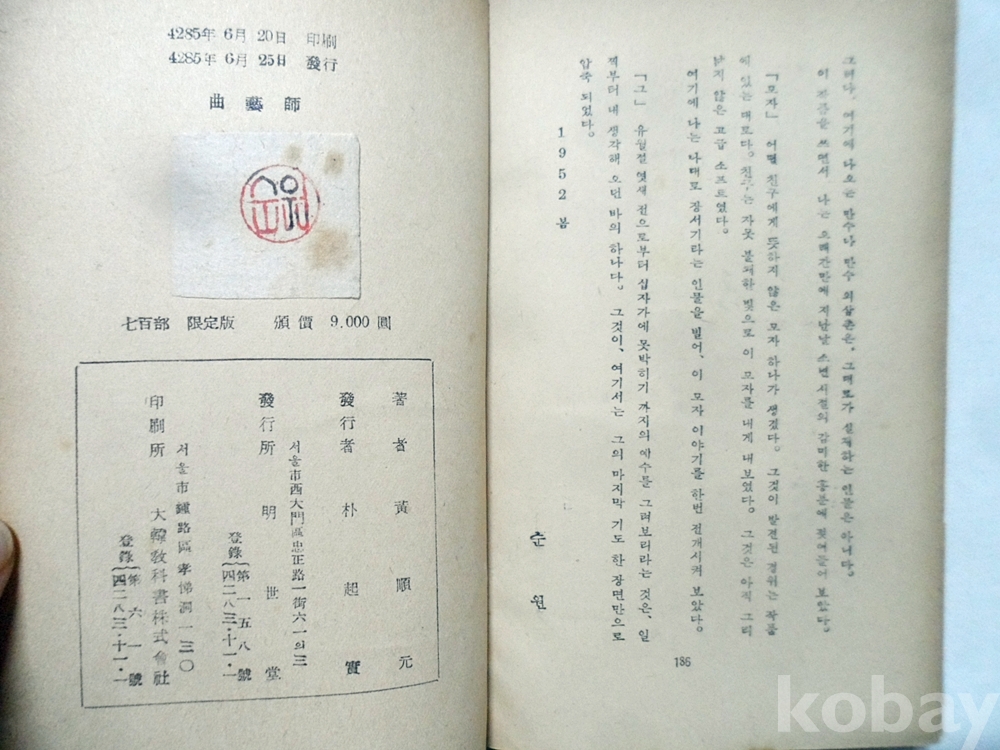 4285年 6月 20日 印刷
4285年 6月 25日 發行
曲藝師
七百部 限定版 頒價 9.000圓
著者 黃順元
發行者 朴起實
서울市西大門區忠正路一街六一의三
發行所 明世堂
登錄(第一五八號
四二八三·十一·一
서울市鍾路區孝悌洞一三〇
印刷所 大韓敎科書株式會社
登錄(第六一號
四二八三·十一·一
그러나, 여기에 나오는 만수나 만수 외삼촌은, 그대로가 실재하는 인물은 아니다.
이 작품을 쓰면서, 나는 오래간만에 지난날 소년시절의 감미한 흥분에 젖어들어 보았다.
「모자」 어떤 친구에게 뜻하지 않은 모자 하나가 생겼다. 그것이 발견된 경위는 작품
에 있는 대로다. 친구는 자못 불쾌한 빛으로 이 모자를 내게 내보였다. 그것은 아직 그리
낡지 않은 고급 소프트였다.
여기에 나는 나대로 장서기라는 인물을 빌어, 이 모자 이야기를 한번 전개시켜 보았다.
「그」 유월절 엿새 전으로부터 십자가에 못박히기 까지의 예수를 그려보리라는 것은, 일
찍부터 내 생각해 오던 바의 하나다. 그것이, 여기서는 그의 마지막 기도 한 장면만으로
압축 되었다.
1952 봄
순원
186
kobay